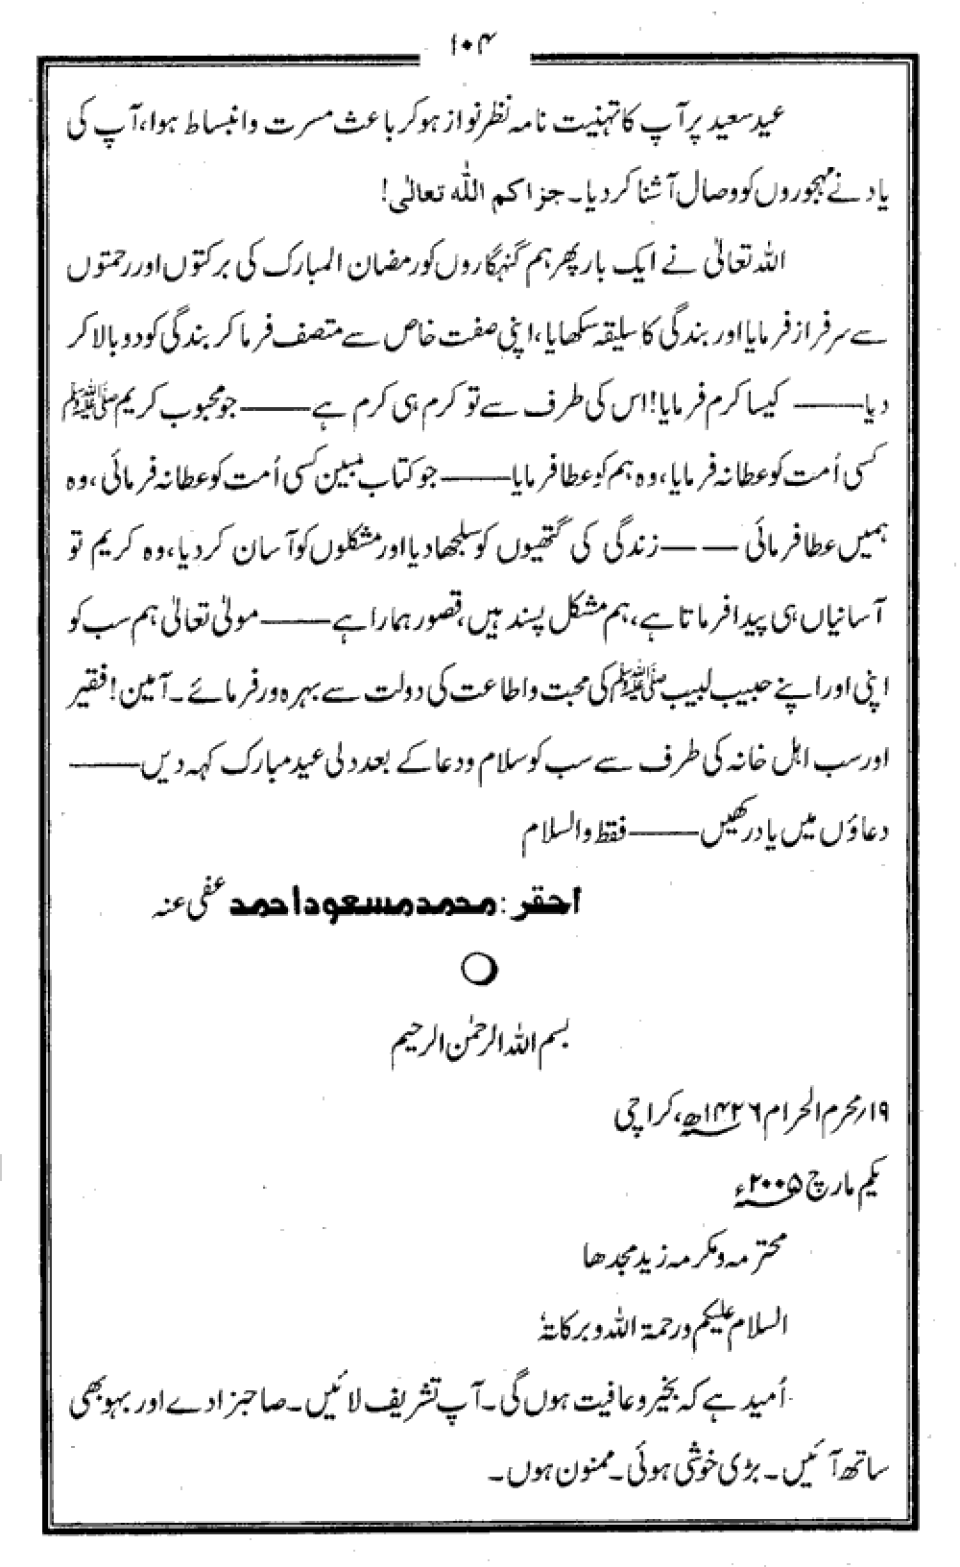 ۱۰۴
عید سعید پر آپ کا تہنیت نامہ نظر نواز ہو کر باعث مسرت و انبساط ہوا، آپ کی
یاد نے مہجوروں کو وصال آشنا کر دیا۔ جزاکم اللہ تعالیٰ!
اللہ تعالیٰ نے ایک بار پھر ہم گنہگاروں کو رمضان المبارک کی برکتوں اور رحمتوں
سے سرفراز فرمایا اور بندگی کا سلیقہ سکھایا، اپنی صفت خاص سے متصف فرما کر بندگی کو دوبالا کر
دیا —— کیسا کرم فرمایا! اس کی طرف سے تو کرم ہی کرم ہے —— جو محبوب کریم ﷺ
کسی اُمت کو عطا نہ فرمایا، وہ ہم کو عطا فرمایا —— جو کتاب مبین کسی اُمت کو عطا نہ فرمائی، وہ
ہمیں عطا فرمائی —— زندگی کی گتھیوں کو سلجھا دیا اور مشکلوں کو آسان کر دیا، وہ کریم تو
آسانیاں ہی پیدا فرماتا ہے، ہم مشکل پسند ہیں، قصور ہمارا ہے —— مولیٰ تعالیٰ ہم سب کو
اپنی اور اپنے حبیب لبیب ﷺ کی محبت و اطاعت کی دولت سے بہرہ ور فرمائے۔ آمین! فقیر
اور سب اہل خانہ کی طرف سے سب کو سلام و دعا کے بعد دلی عید مبارک کہہ دیں ——
دعاؤں میں یاد رکھیں —— فقط والسلام
احقر: محمد مسعود احمد عفی عنہ
بسم اللہ الرحمٰن الرحیم
۱۹/محرم الحرام ۱۴۲۶ھ، کراچی
یکم مارچ ۲۰۰۵ء
محترمہ و مکرمہ زید مجدھا
السلام علیکم ورحمۃ اللہ وبرکاتہٗ
اُمید ہے کہ بخیر و عافیت ہوں گی۔ آپ تشریف لائیں۔ صاحبزادے اور بہو بھی
ساتھ آئیں۔ بڑی خوشی ہوئی۔ ممنون ہوں۔